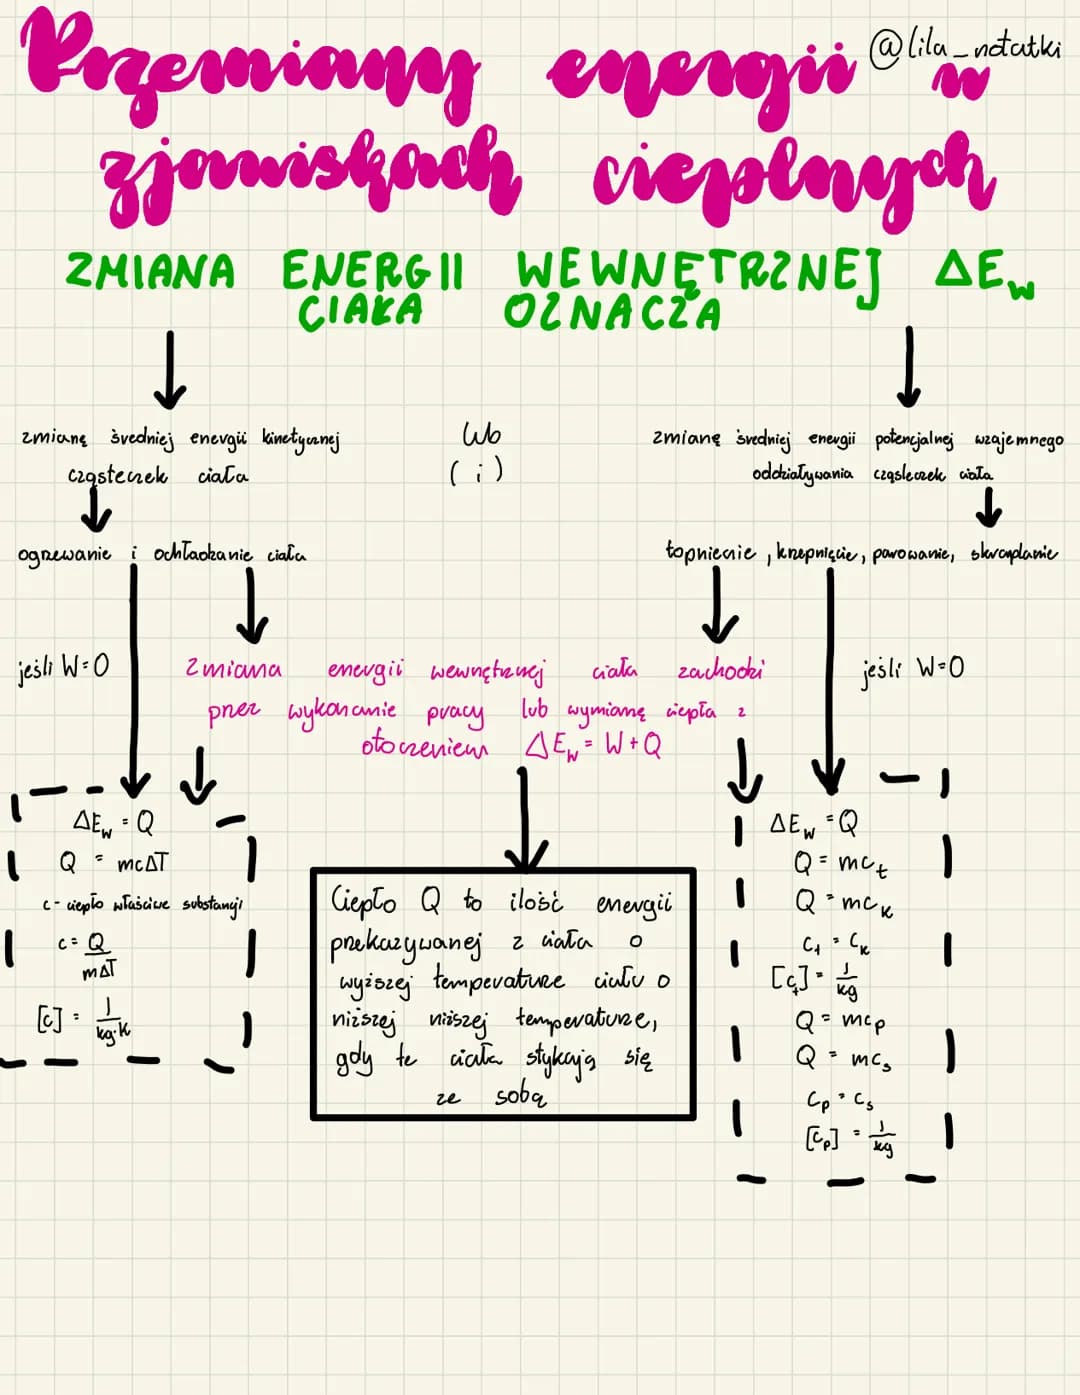 Przemiany energii w
@lila_notatki
zjawiskach cieplnych
ZMIANA ENERGII WEWNĘTRZNEJ ΔEw
CIAŁA OZNACZA
zmianę średniej energii kinetycznej
cząsteczek ciała
lub
(i)
zmianę średniej energii potencjalnej wzajemnego
oddziaływania cząsteczek ciała
ogrzewanie i ochładzanie ciała
topnienie, krzepnięcie, parowanie, skraplanie
jeśli W=0
zmiana energii wewnętrznej ciała zachodzi
przez wykonanie pracy lub wymianę ciepła z
otoczeniem ΔEw = W+Q
jeśli W=0
ΔEw = Q
Q = mcΔT
c- ciepło właściwe substancji
c = Q
mΔT
[c] = J
kg·K
Ciepło Q to ilość energii
przekazywanej z ciała o
wyższej temperaturze ciału o
niższej niższej temperaturze,
gdy te ciała stykają się
ze sobą
ΔEw = Q
Q = mct
Q = mck
ct = ck
[ct] = J
kg
Q = mcp
Q = mcs
cp = cs
[cp] = J
kg